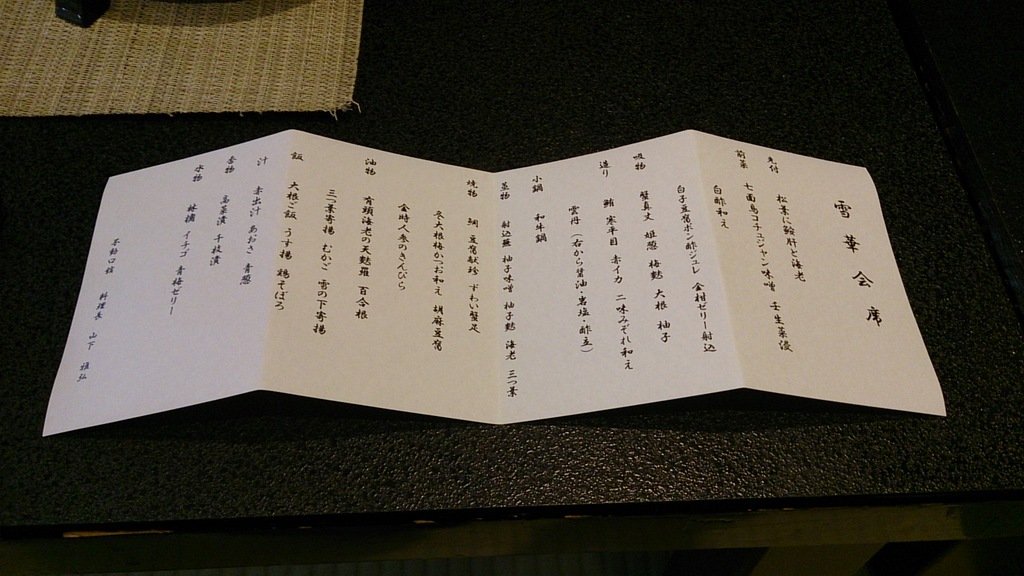 雪華会席
先付 松葉に鮟肝と海老
前菜 七面鳥コチュジャン味噌 壬生菜浸
白酢和え
白子豆腐ポン酢ジュレ 金柑ゼリー射込
吸物 蟹真丈 姫葱 梅麩 大根 柚子
造り 鮪 寒平目 赤イカ 二味みぞれ和え
雲丹(右から醤油・岩塩・酢立)
小鍋 和牛鍋
蒸物 射込蕪 柚子味噌 柚子麩 海老 三つ葉
焼物 鯛 豆腐献珍 ずわい蟹足
冬大根梅かつお和え 胡麻豆腐
金時人参のきんぴら
油物 有頭海老の天麩羅 百合根
三つ葉寄揚 むかご 雪の下寄揚
飯 大根ご飯 うす揚 鶏そぼろ
汁 赤出汁 あおさ 青葱
香物 高菜漬 千枚漬
水物 林檎 イチゴ 青梅ゼリー
不動口館 料理長 山下 雅弘